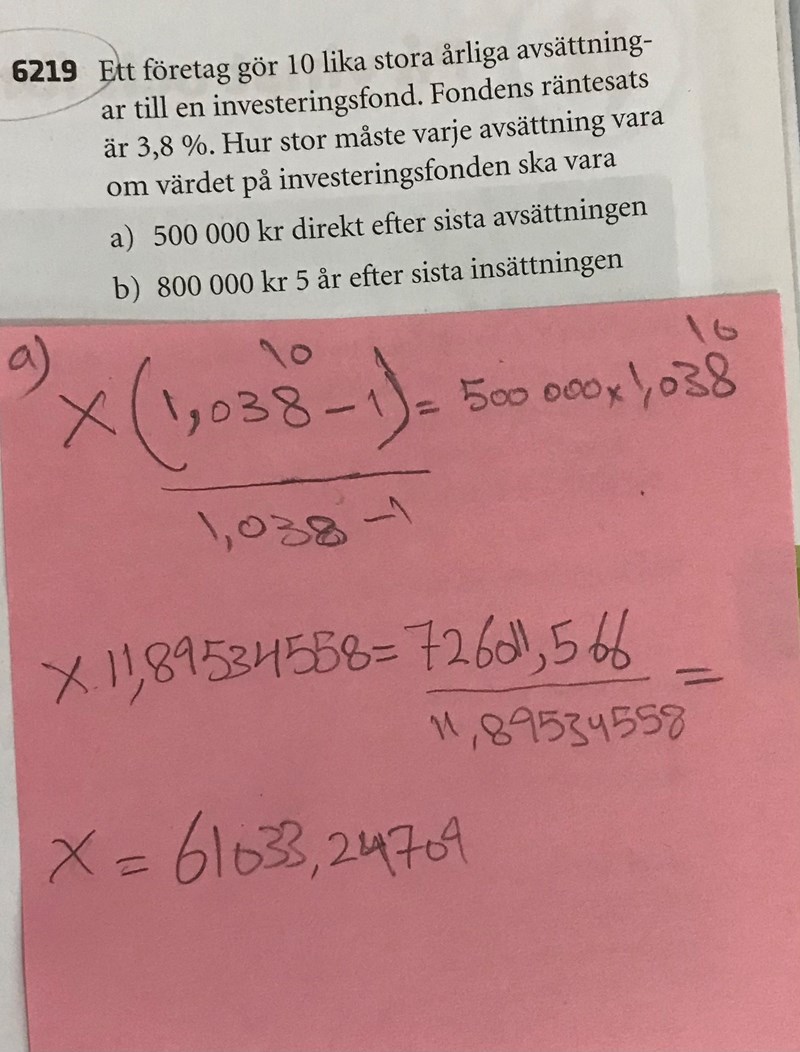 6219 Ett företag gör 10 lika stora årliga avsättning-
ar till en investeringsfond. Fondens räntesats
är 3,8 %. Hur stor måste varje avsättning vara
om värdet på investeringsfonden ska vara
a) 500 000 kr direkt efter sista avsättningen
b) 800 000 kr 5 år efter sista insättningen
a)
10 10
x(1,038-1) = 500 000x1,038
1,038-1
x.11,89534558= 72601,566 =
11,89534558
x = 61033,24709